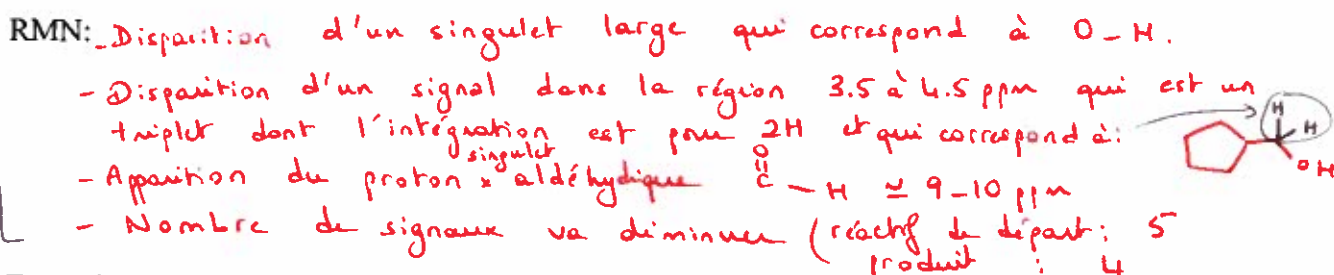 RMN: - Disparition d'un singulet large qui correspond à O-H.
- Disparition d'un signal dans la région 3.5 à 4.5 ppm qui est un
triplet dont l'intégration est pour 2H et qui correspond à:
H
H
OH
singulet
- Apparition du proton x aldéhydique O C - H ≃ 9-10 ppm
- Nombre de signaux va diminuer (réactif de départ: 5
produit : 4